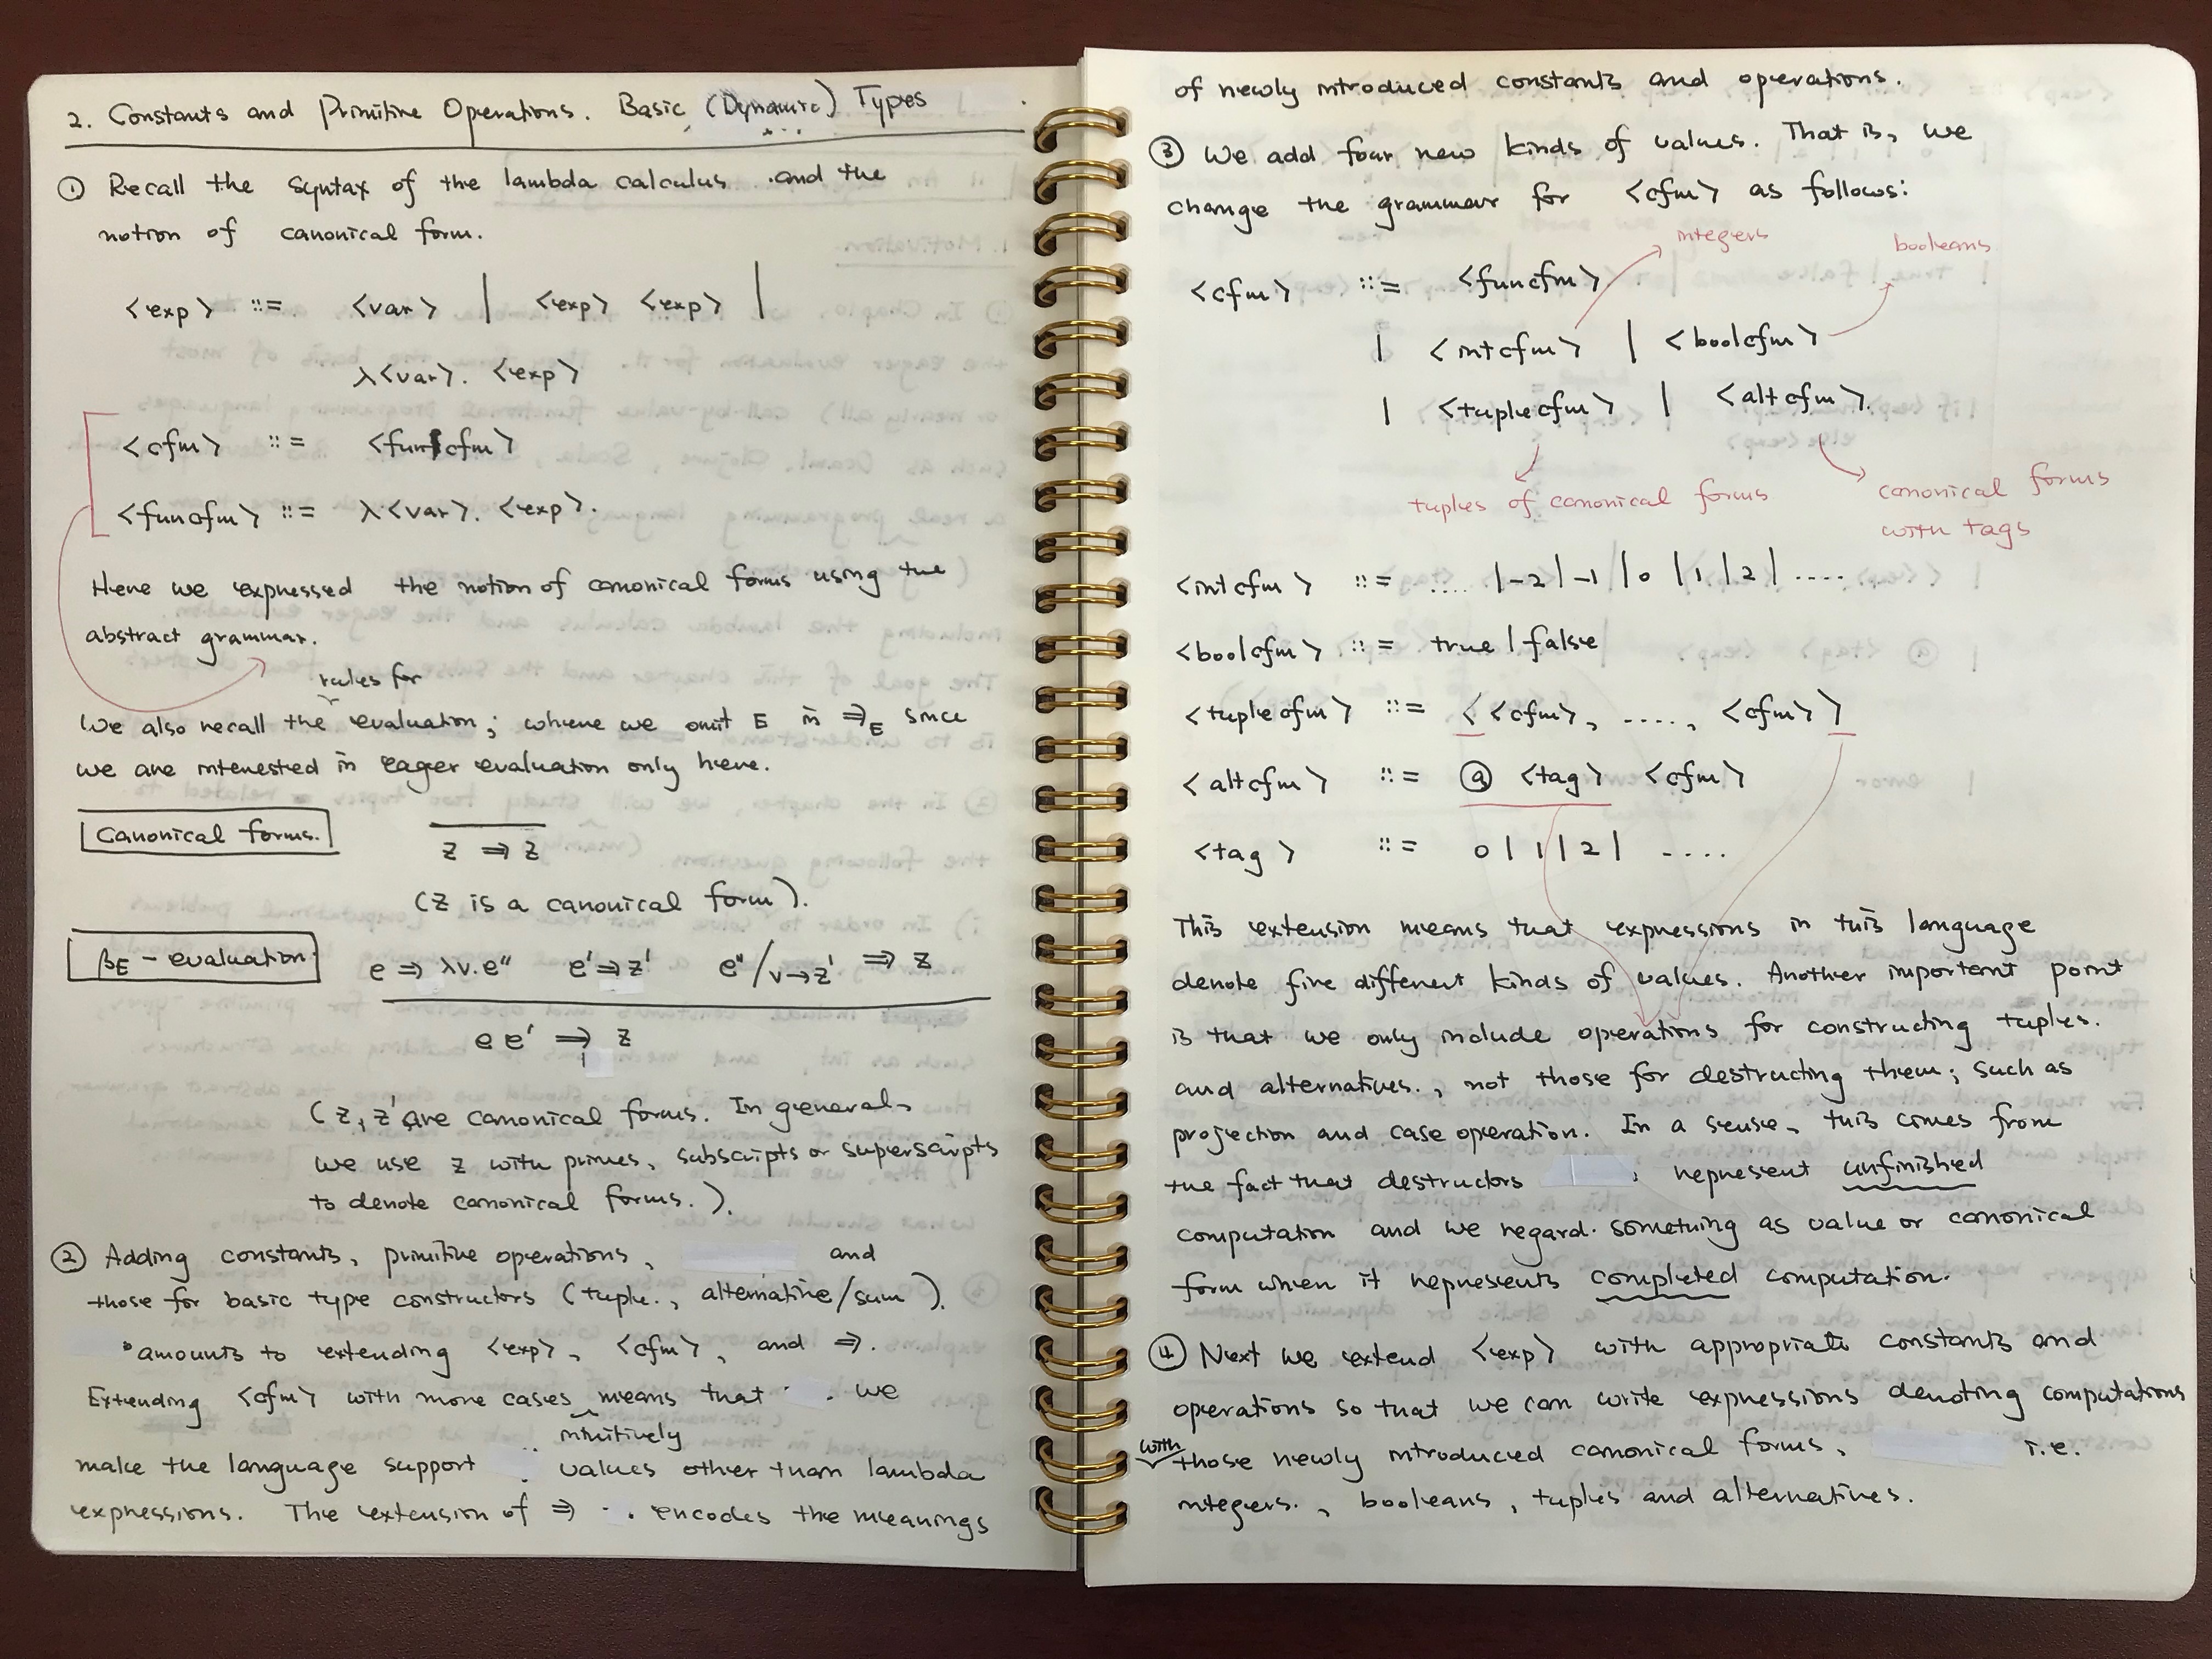 2. Constants and Primitive Operations. Basic (Dynamic) Types
① Recall the syntax of the lambda calculus and the
notion of canonical form.
<exp> ::= <var> | <exp> <exp> |
λ<var>. <exp>
<cfm> ::= <funcfm>
<funcfm> ::= λ<var>. <exp>.
Here we expressed the notion of canonical forms using the
abstract grammar.
rules for
We also recall the evaluation; where we omit E in ⇒E since
we are interested in eager evaluation only here.
Canonical forms.
z ⇒ z
(z is a canonical form).
βE - evaluation
e ⇒ λv.e'' e' ⇒ z' e''/v→z' ⇒ z
e e' ⇒ z
(z, z' are canonical forms. In general,
we use z with primes, subscripts or superscripts
to denote canonical forms.).
② Adding constants, primitive operations, and
those for basic type constructors (tuple, alternative/sum).
amounts to extending <exp>, <cfm>, and ⇒.
Extending <cfm> with more cases means that we
intuitively
make the language support values other than lambda
expressions. The extension of ⇒ encodes the meanings
of newly introduced constants and operations.
③ We add four new kinds of values. That is, we
change the grammar for <cfm> as follows:
integers
booleans
<cfm> ::= <funcfm>
| <intcfm> | <boolcfm>
| <tuplecfm> | <altcfm>.
tuples of canonical forms
canonical forms
with tags
<intcfm> ::= .... |-2|-1|0|1|2| ....
<boolcfm> ::= true | false
<tuplecfm> ::= < <cfm>, ...., <cfm> >
<altcfm> ::= @ <tag> <cfm>
<tag> ::= 0|1|2| ....
This extension means that expressions in this language
denote five different kinds of values. Another important point
is that we only include operations for constructing tuples.
and alternatives., not those for destructing them, such as
projection and case operation. In a sense, this comes from
the fact that destructors represent unfinished
computation and we regard something as value or canonical
form when it represents completed computation.
④ Next we extend <exp> with appropriate constants and
operations so that we can write expressions denoting computations
with
those newly introduced canonical forms, i.e.
integers., booleans, tuples and alternatives.